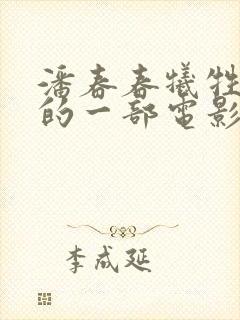 潘春春犧牲
的一部電影
李成延